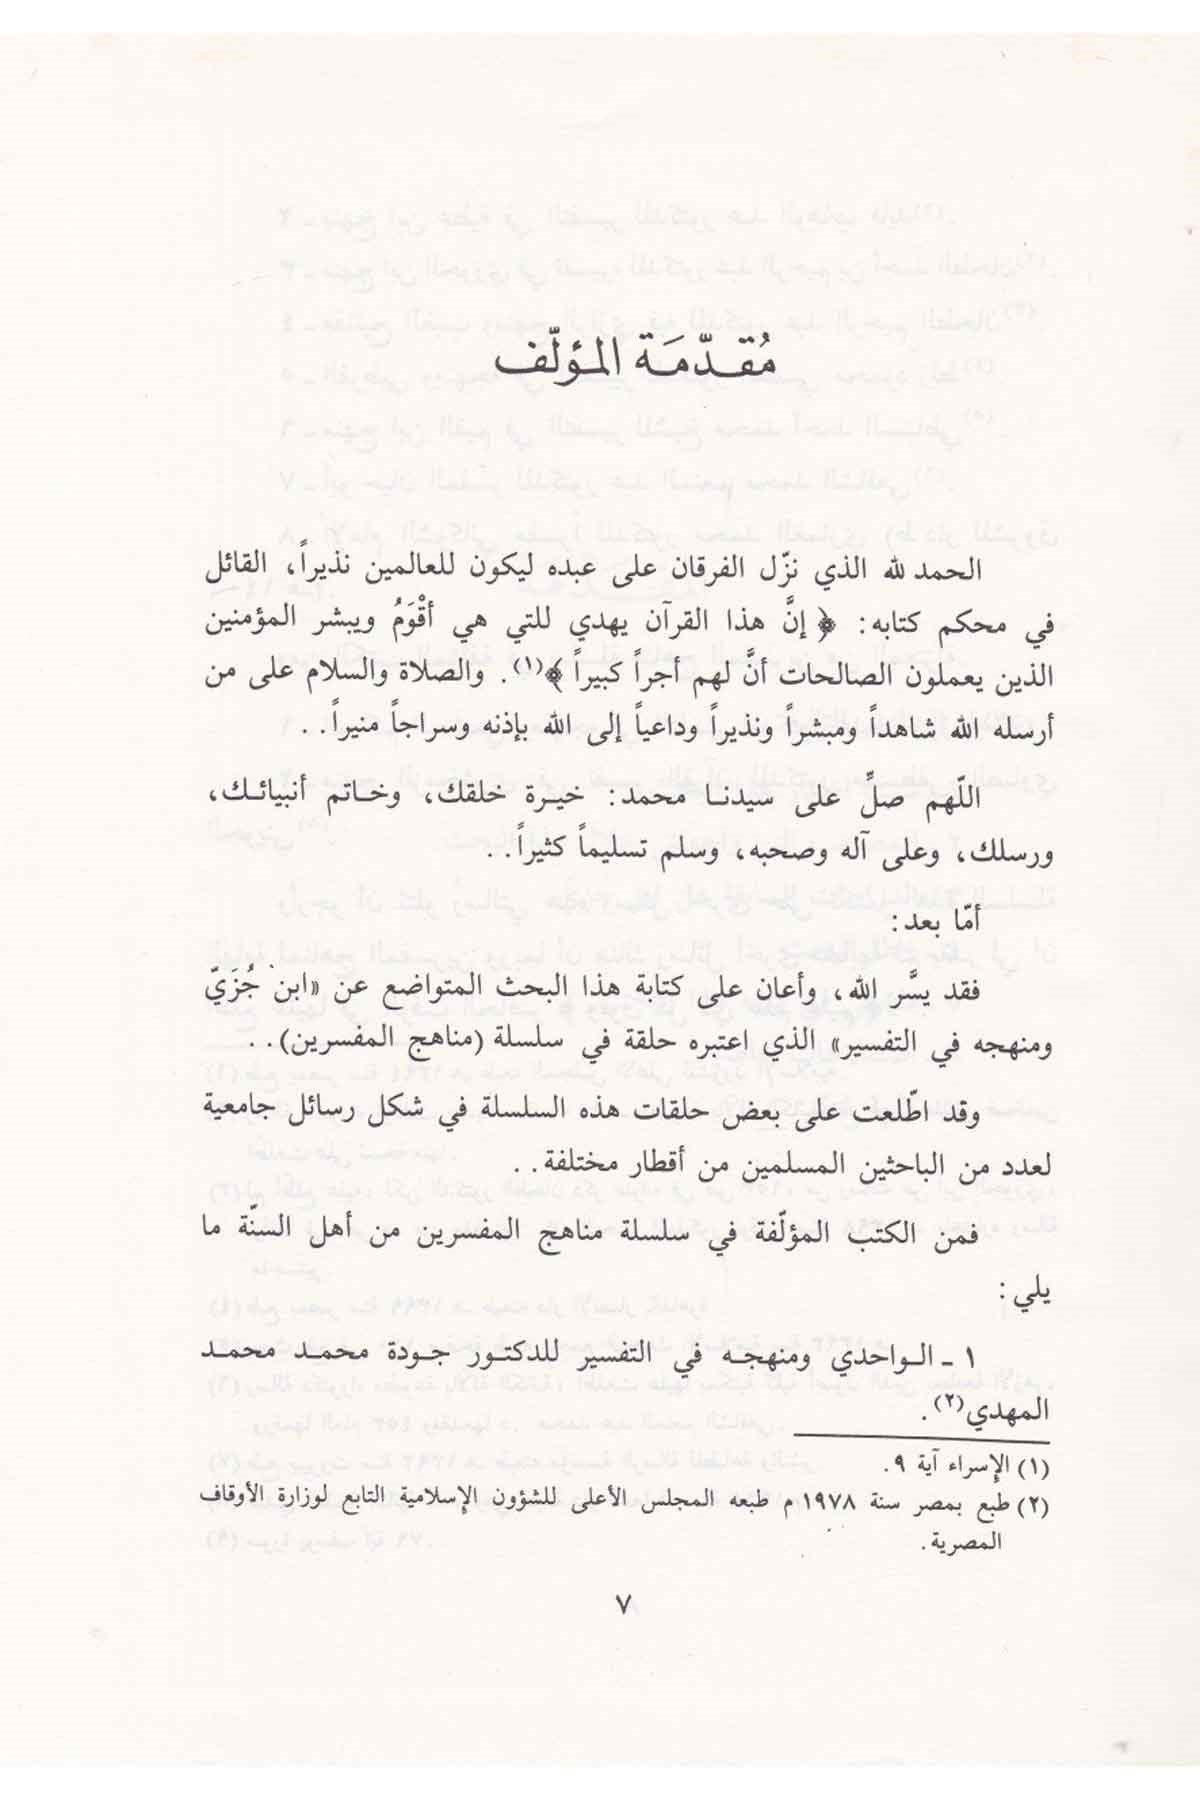 مُقدّمَة المؤلّف
الحمد لله الذي نزّل الفرقان على عبده ليكون للعالمين نذيراً، القائل
في محكم كتابه: ﴿ إنَّ هذا القرآن يهدي للتي هي أقْوَمُ ويبشر المؤمنين
الذين يعملون الصالحات أنَّ لهم أجراً كبيراً ﴾(١). والصلاة والسلام على من
أرسله الله شاهداً ومبشراً ونذيراً وداعياً إلى الله بإذنه وسراجاً منيراً..
اللّهم صلِّ على سيدنا محمد: خيرة خلقك، وخاتم أنبيائك،
ورسلك، وعلى آله وصحبه، وسلم تسليماً كثيراً..
أمّا بعد:
فقد يسَّر الله، وأعان على كتابة هذا البحث المتواضع عن «ابن جُزَيّ
ومنهجه في التفسير» الذي اعتبره حلقة في سلسلة (مناهج المفسرين)..
وقد اطّلعت على بعض حلقات هذه السلسلة في شكل رسائل جامعية
لعدد من الباحثين المسلمين من أقطار مختلفة..
فمن الكتب المؤلّفة في سلسلة مناهج المفسرين من أهل السنّة ما
يلي:
١ ـ الواحدي ومنهجه في التفسير للدكتور جودة محمد محمد
المهدي(٢).
(١) الإسراء آية ٩.
(٢) طبع بمصر سنة ١٩٧٨ م طبعه المجلس الأعلى للشؤون الإسلامية التابع لوزارة الأوقاف
المصرية.
٧